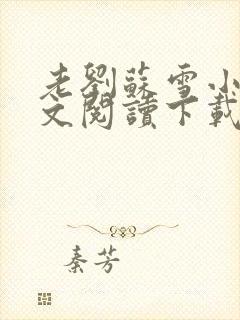 老劉蘇雪小
文閱讀下載
秦芳